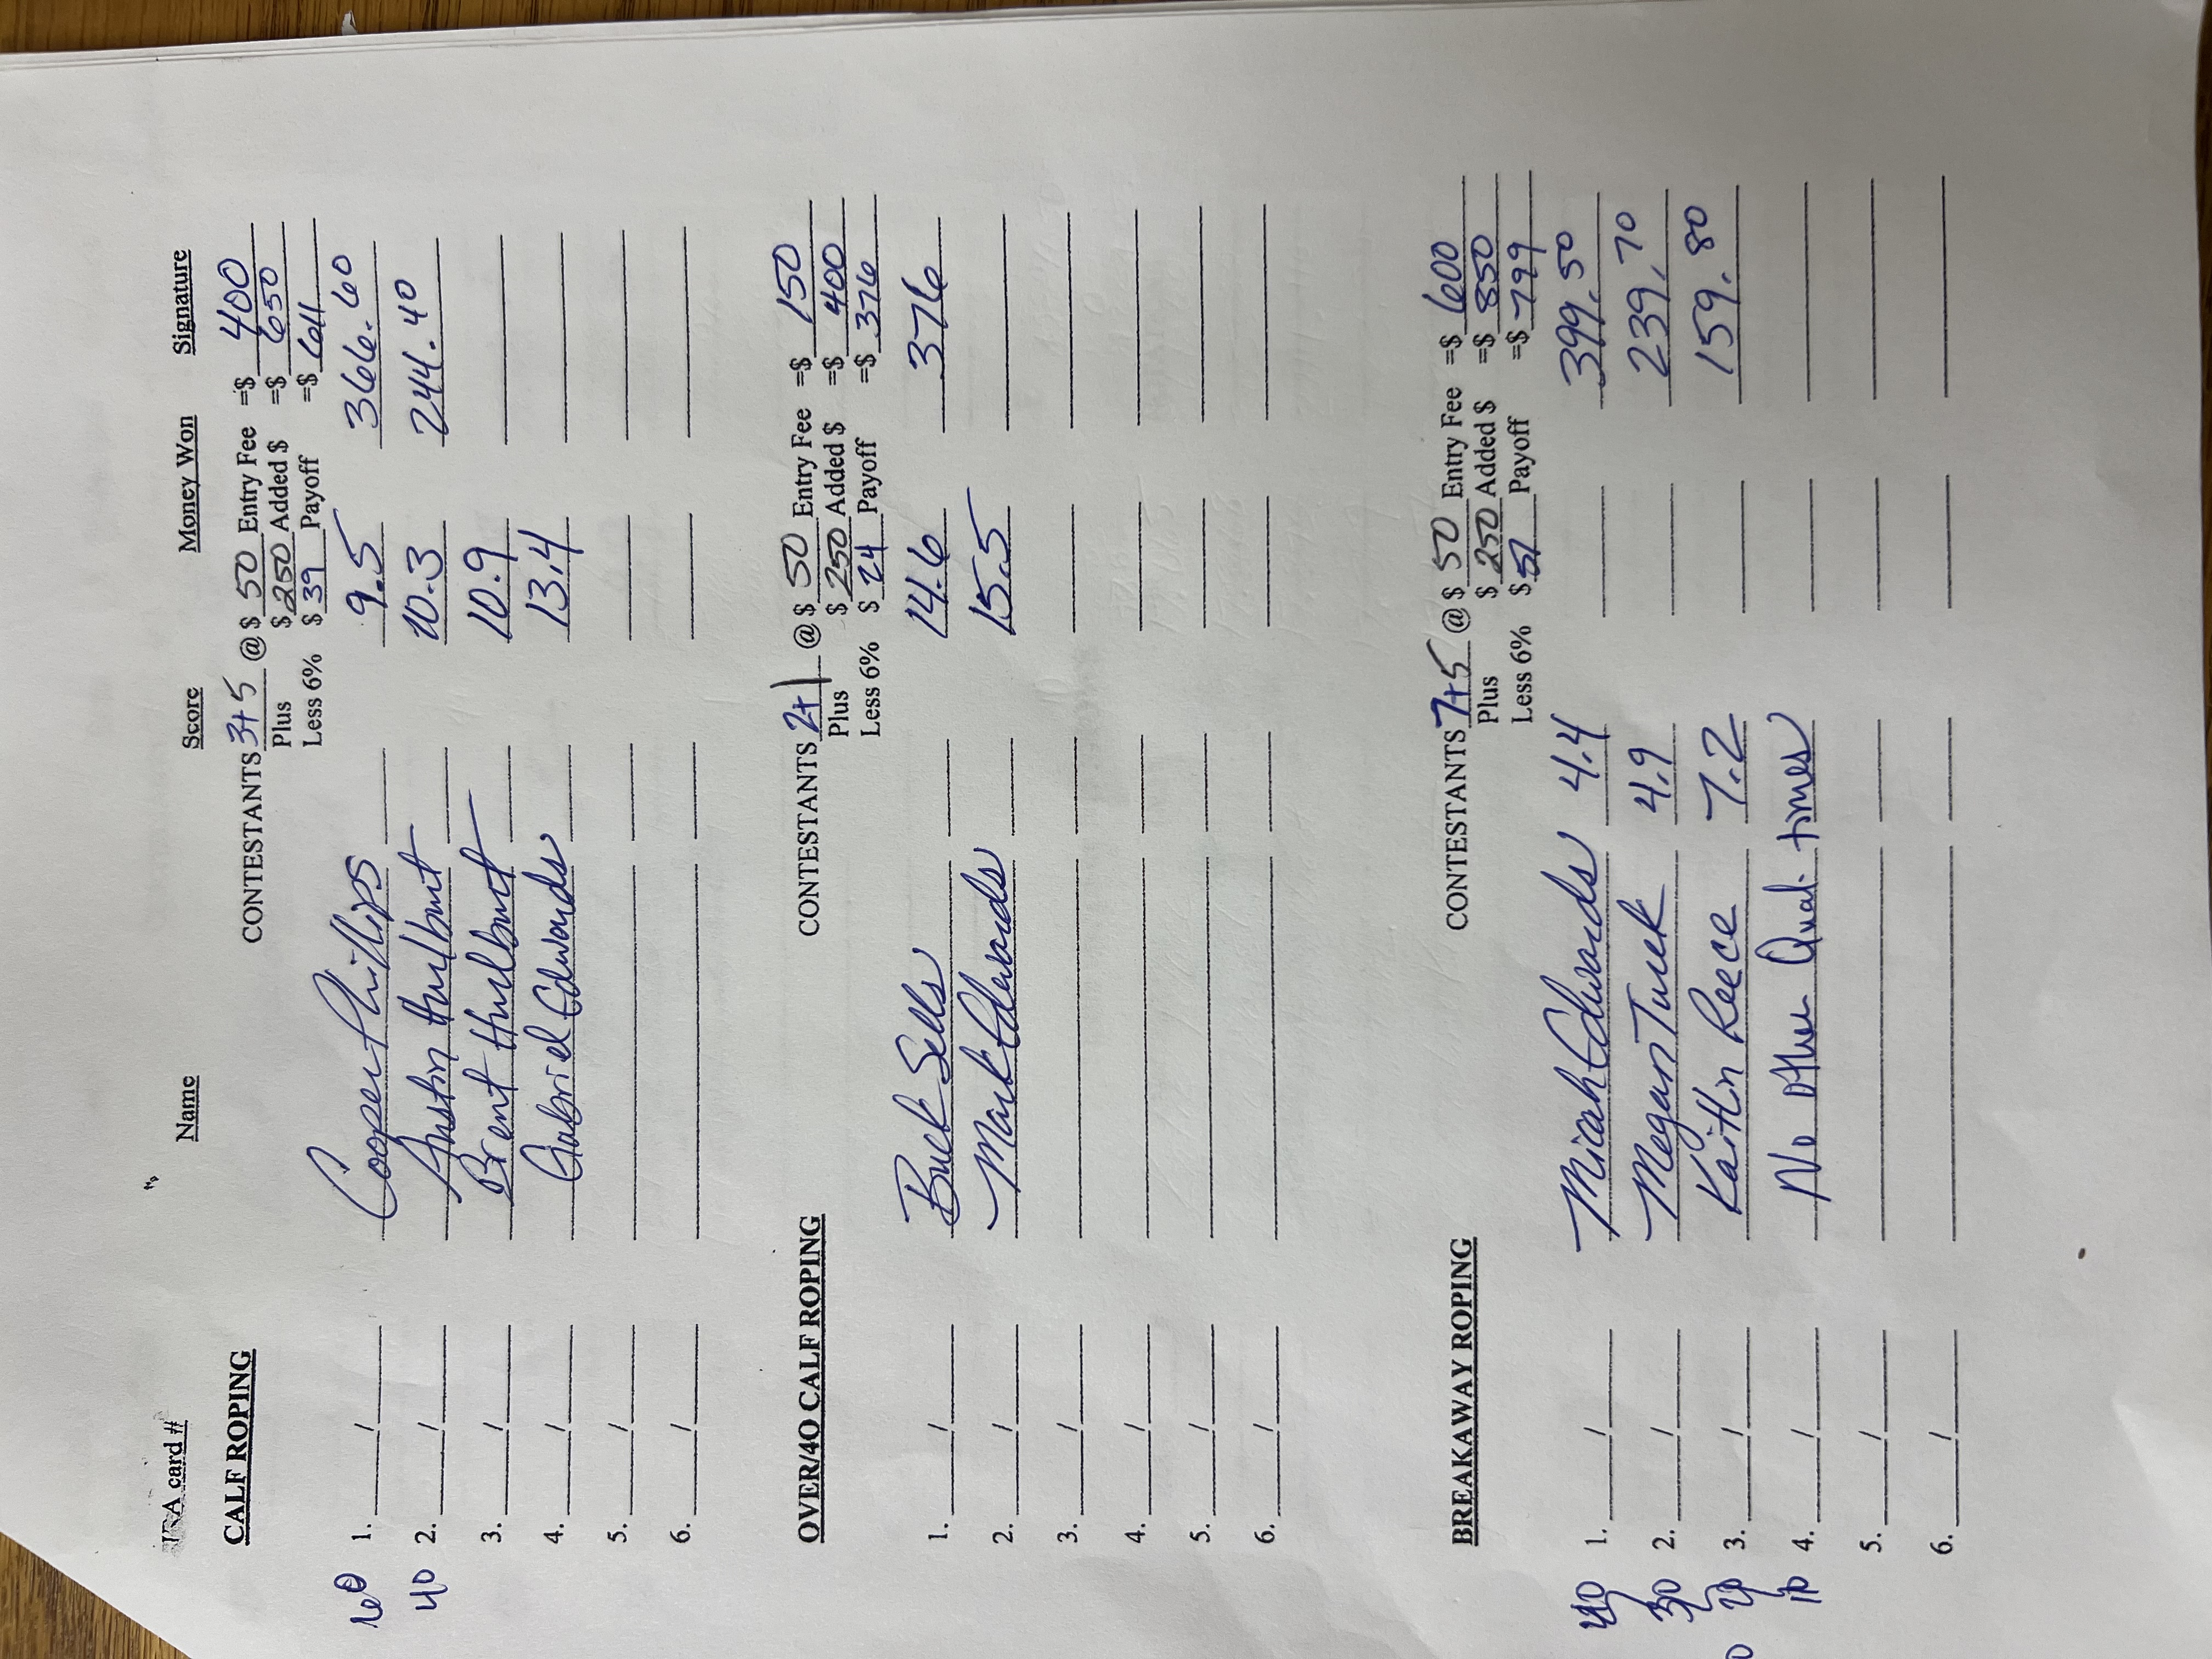 IRA card # Name Score Money Won Signature
CALF ROPING CONTESTANTS 3+5 @ $ 50 Entry Fee =$ 400
Plus $ 250 Added $ =$ 650
Less 6% $ 39 Payoff =$ 611
60 1. / Cooper Phillips 9.5 366.60
40 2. / Austin Hurlbut 10.3 244.40
3. / Brent Hurlbut 10.9
4. / Gabriel Edwards 13.4
5. /
6. /
OVER/4O CALF ROPING CONTESTANTS 2+1 @ $ 50 Entry Fee =$ 150
Plus $ 250 Added $ =$ 400
Less 6% $ 24 Payoff =$ 376
1. / Buck Sells 14.6 376
2. / Mark Edwards 15.5
3. /
4. /
5. /
6. /
BREAKAWAY ROPING CONTESTANTS 7+5 @ $ 50 Entry Fee =$ 600
Plus $ 250 Added $ =$ 850
Less 6% $ 51 Payoff =$ 799
40 1. / Micah Edwards 4.4 399.50
30 2. / Megan Turek 4.9 239.70
20 3. / Kaitlin Reece 7.2 159.80
10 4. / No Other Qual. times
5. /
6. /